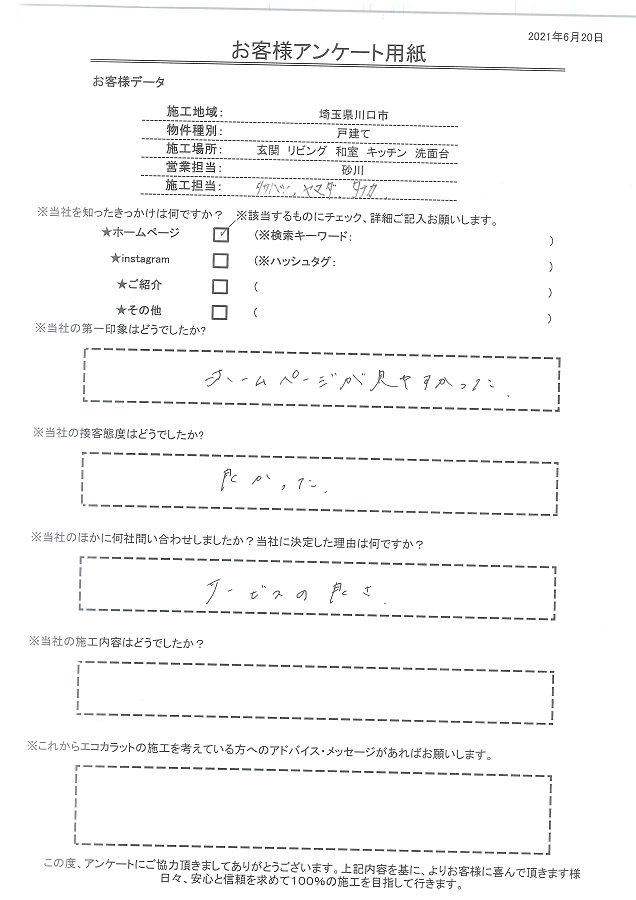 2021年6月20日
お客様アンケート用紙
お客様データ
施工地域： 埼玉県川口市
物件種別： 戸建て
施工場所： 玄関 リビング 和室 キッチン 洗面台
営業担当： 砂川
施工担当： ヤマダ、タナカ
※当社を知ったきっかけは何ですか？ ※該当するものにチェック、詳細ご記入お願いします。
★ホームページ ✓ （※検索キーワード： ）
★instagram （※ハッシュタグ： ）
★ご紹介 （ ）
★その他 （ ）
※当社の第一印象はどうでしたか?
ホームページが見やすかった.
※当社の接客態度はどうでしたか?
良かった.
※当社のほかに何社問い合わせしましたか？当社に決定した理由は何ですか？
サービスの良さ.
※当社の施工内容はどうでしたか？
※これからエコカラットの施工を考えている方へのアドバイス・メッセージがあればお願いします。
この度、アンケートにご協力頂きましてありがとうございます。上記内容を基に、よりお客様に喜んで頂きます様
日々、安心と信頼を求めて100％の施工を目指して行きます。